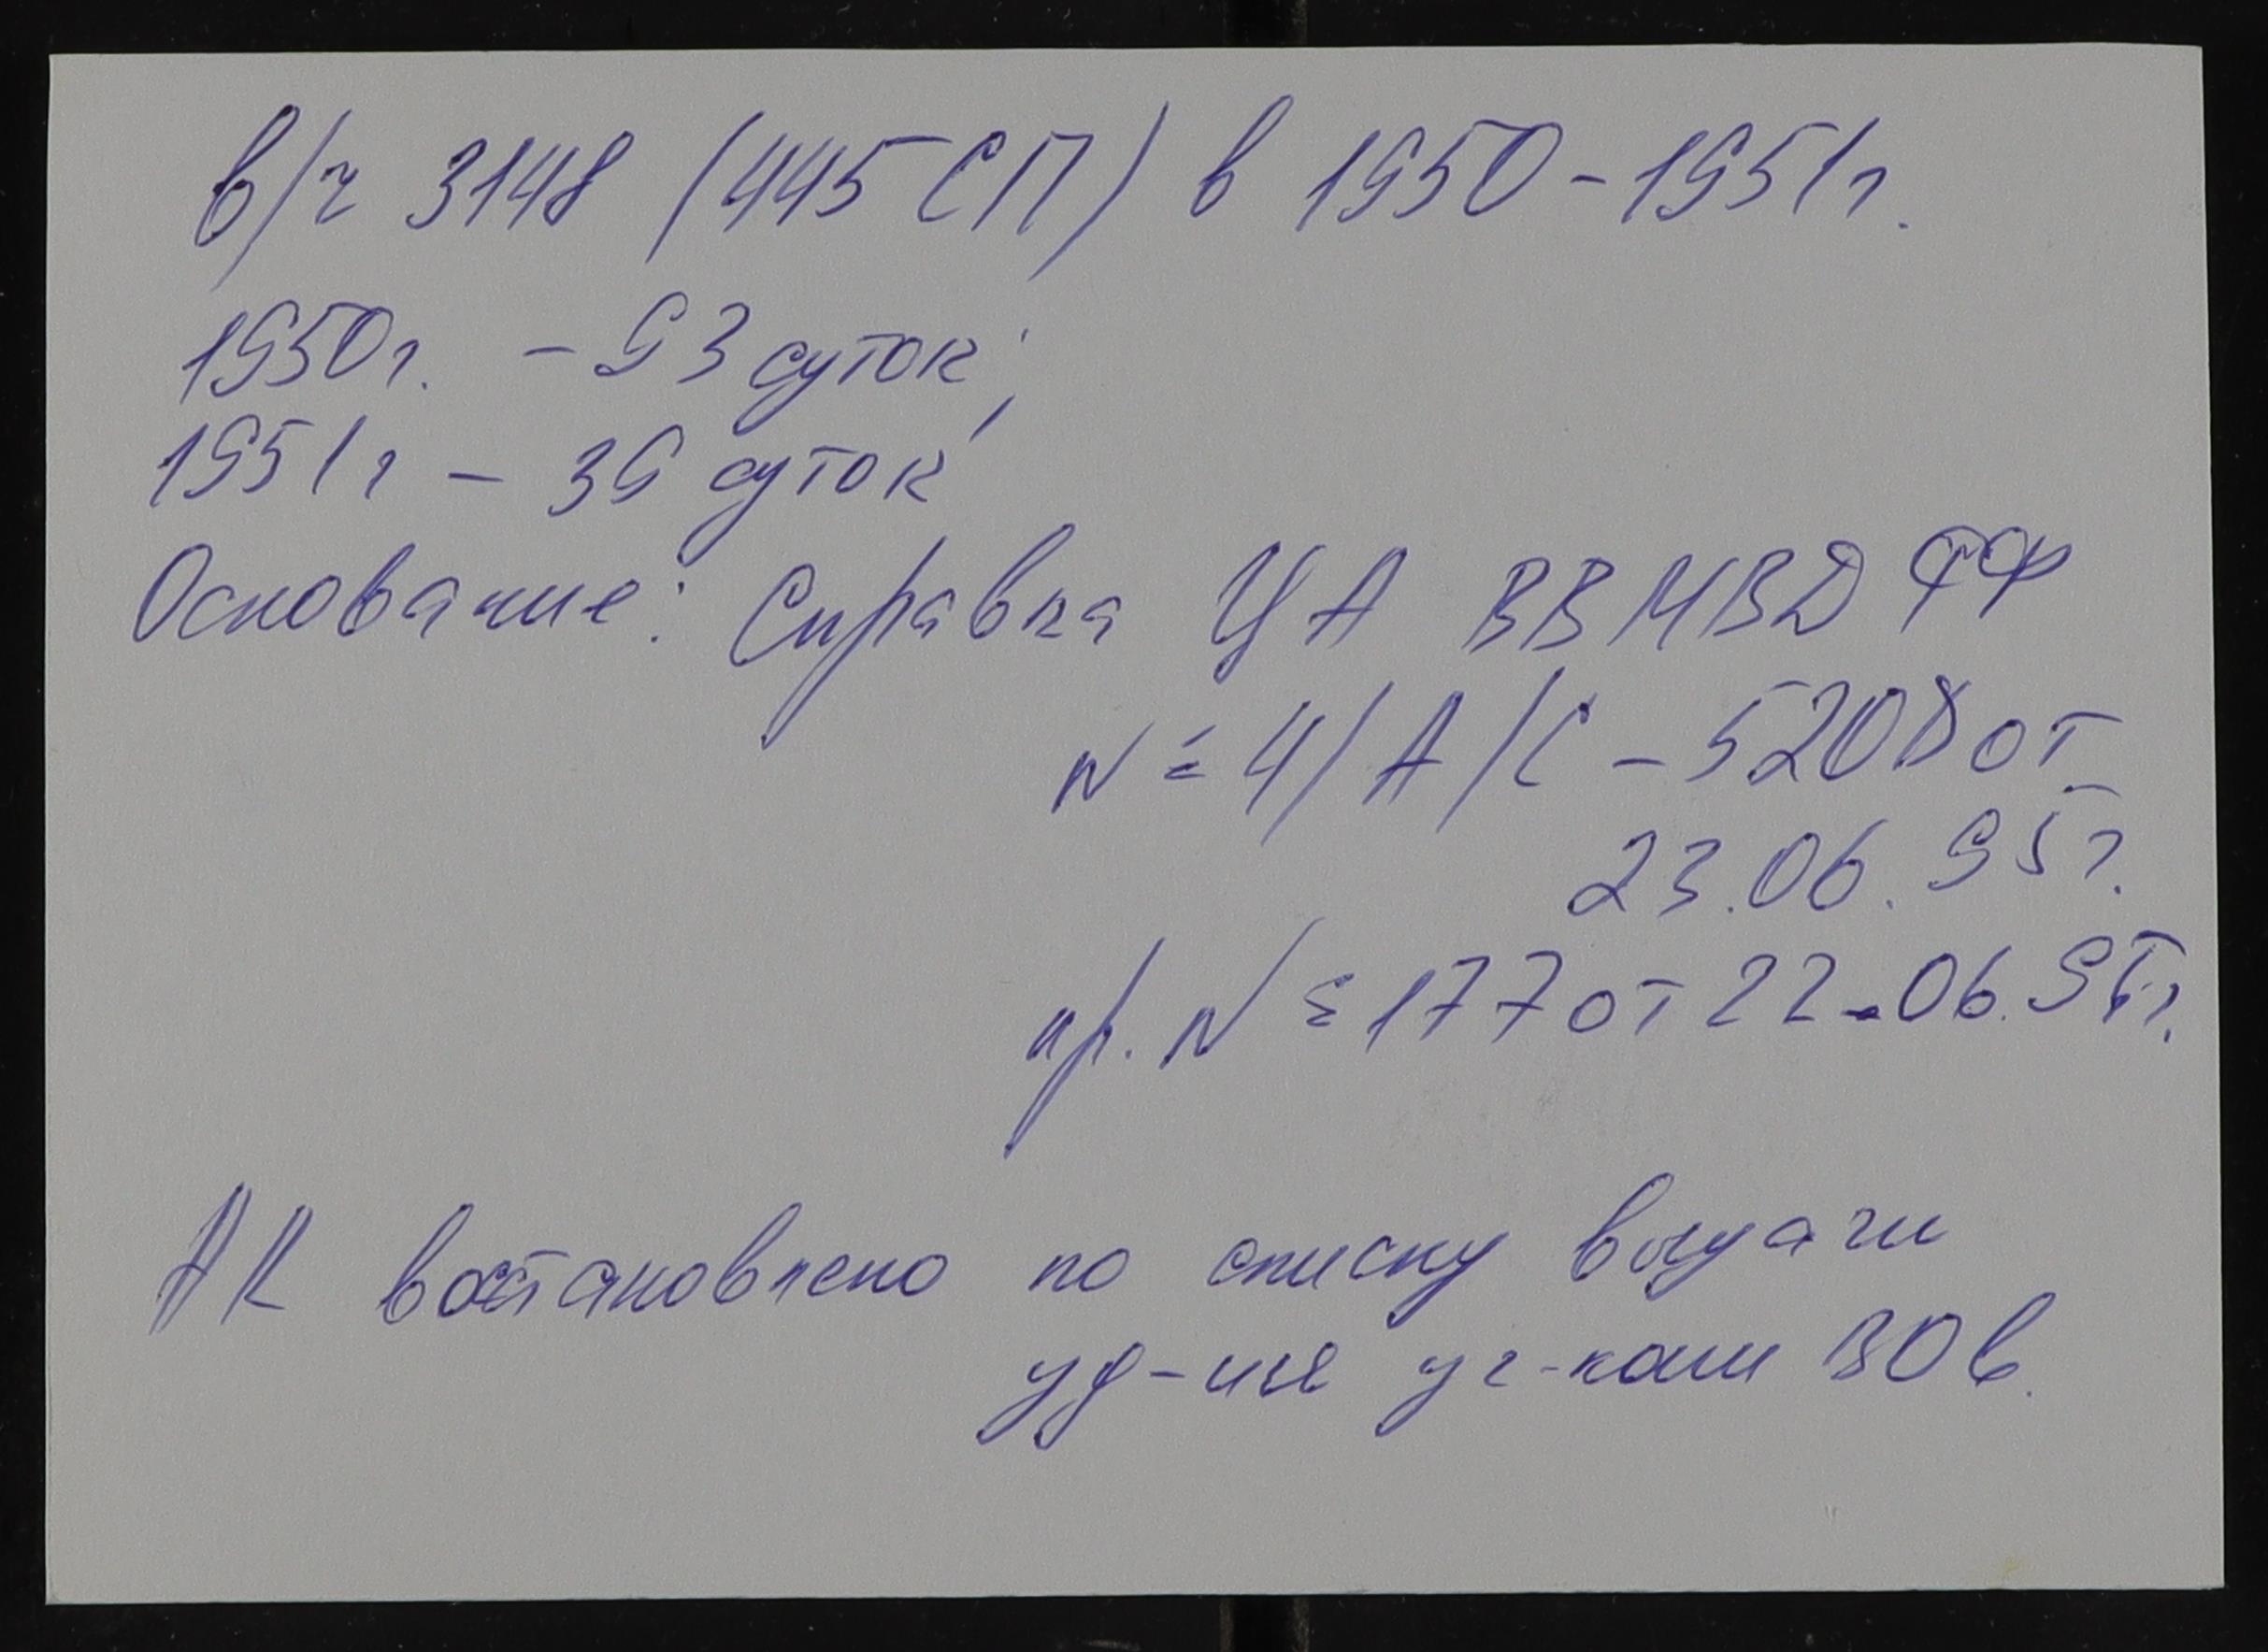 в/ч 3148 (445 СП) в 1950-1951г.
1950г. - 93 суток;
1951г - 39 суток
Основание: Справка ЦА ВВ МВД РФ
№ 4/А/С - 5208 от
23.06.95г.
пр. № 177 от 22.06.95г.
АК востановлено по списку выдачи
уд-ия уч-кам ВОв.